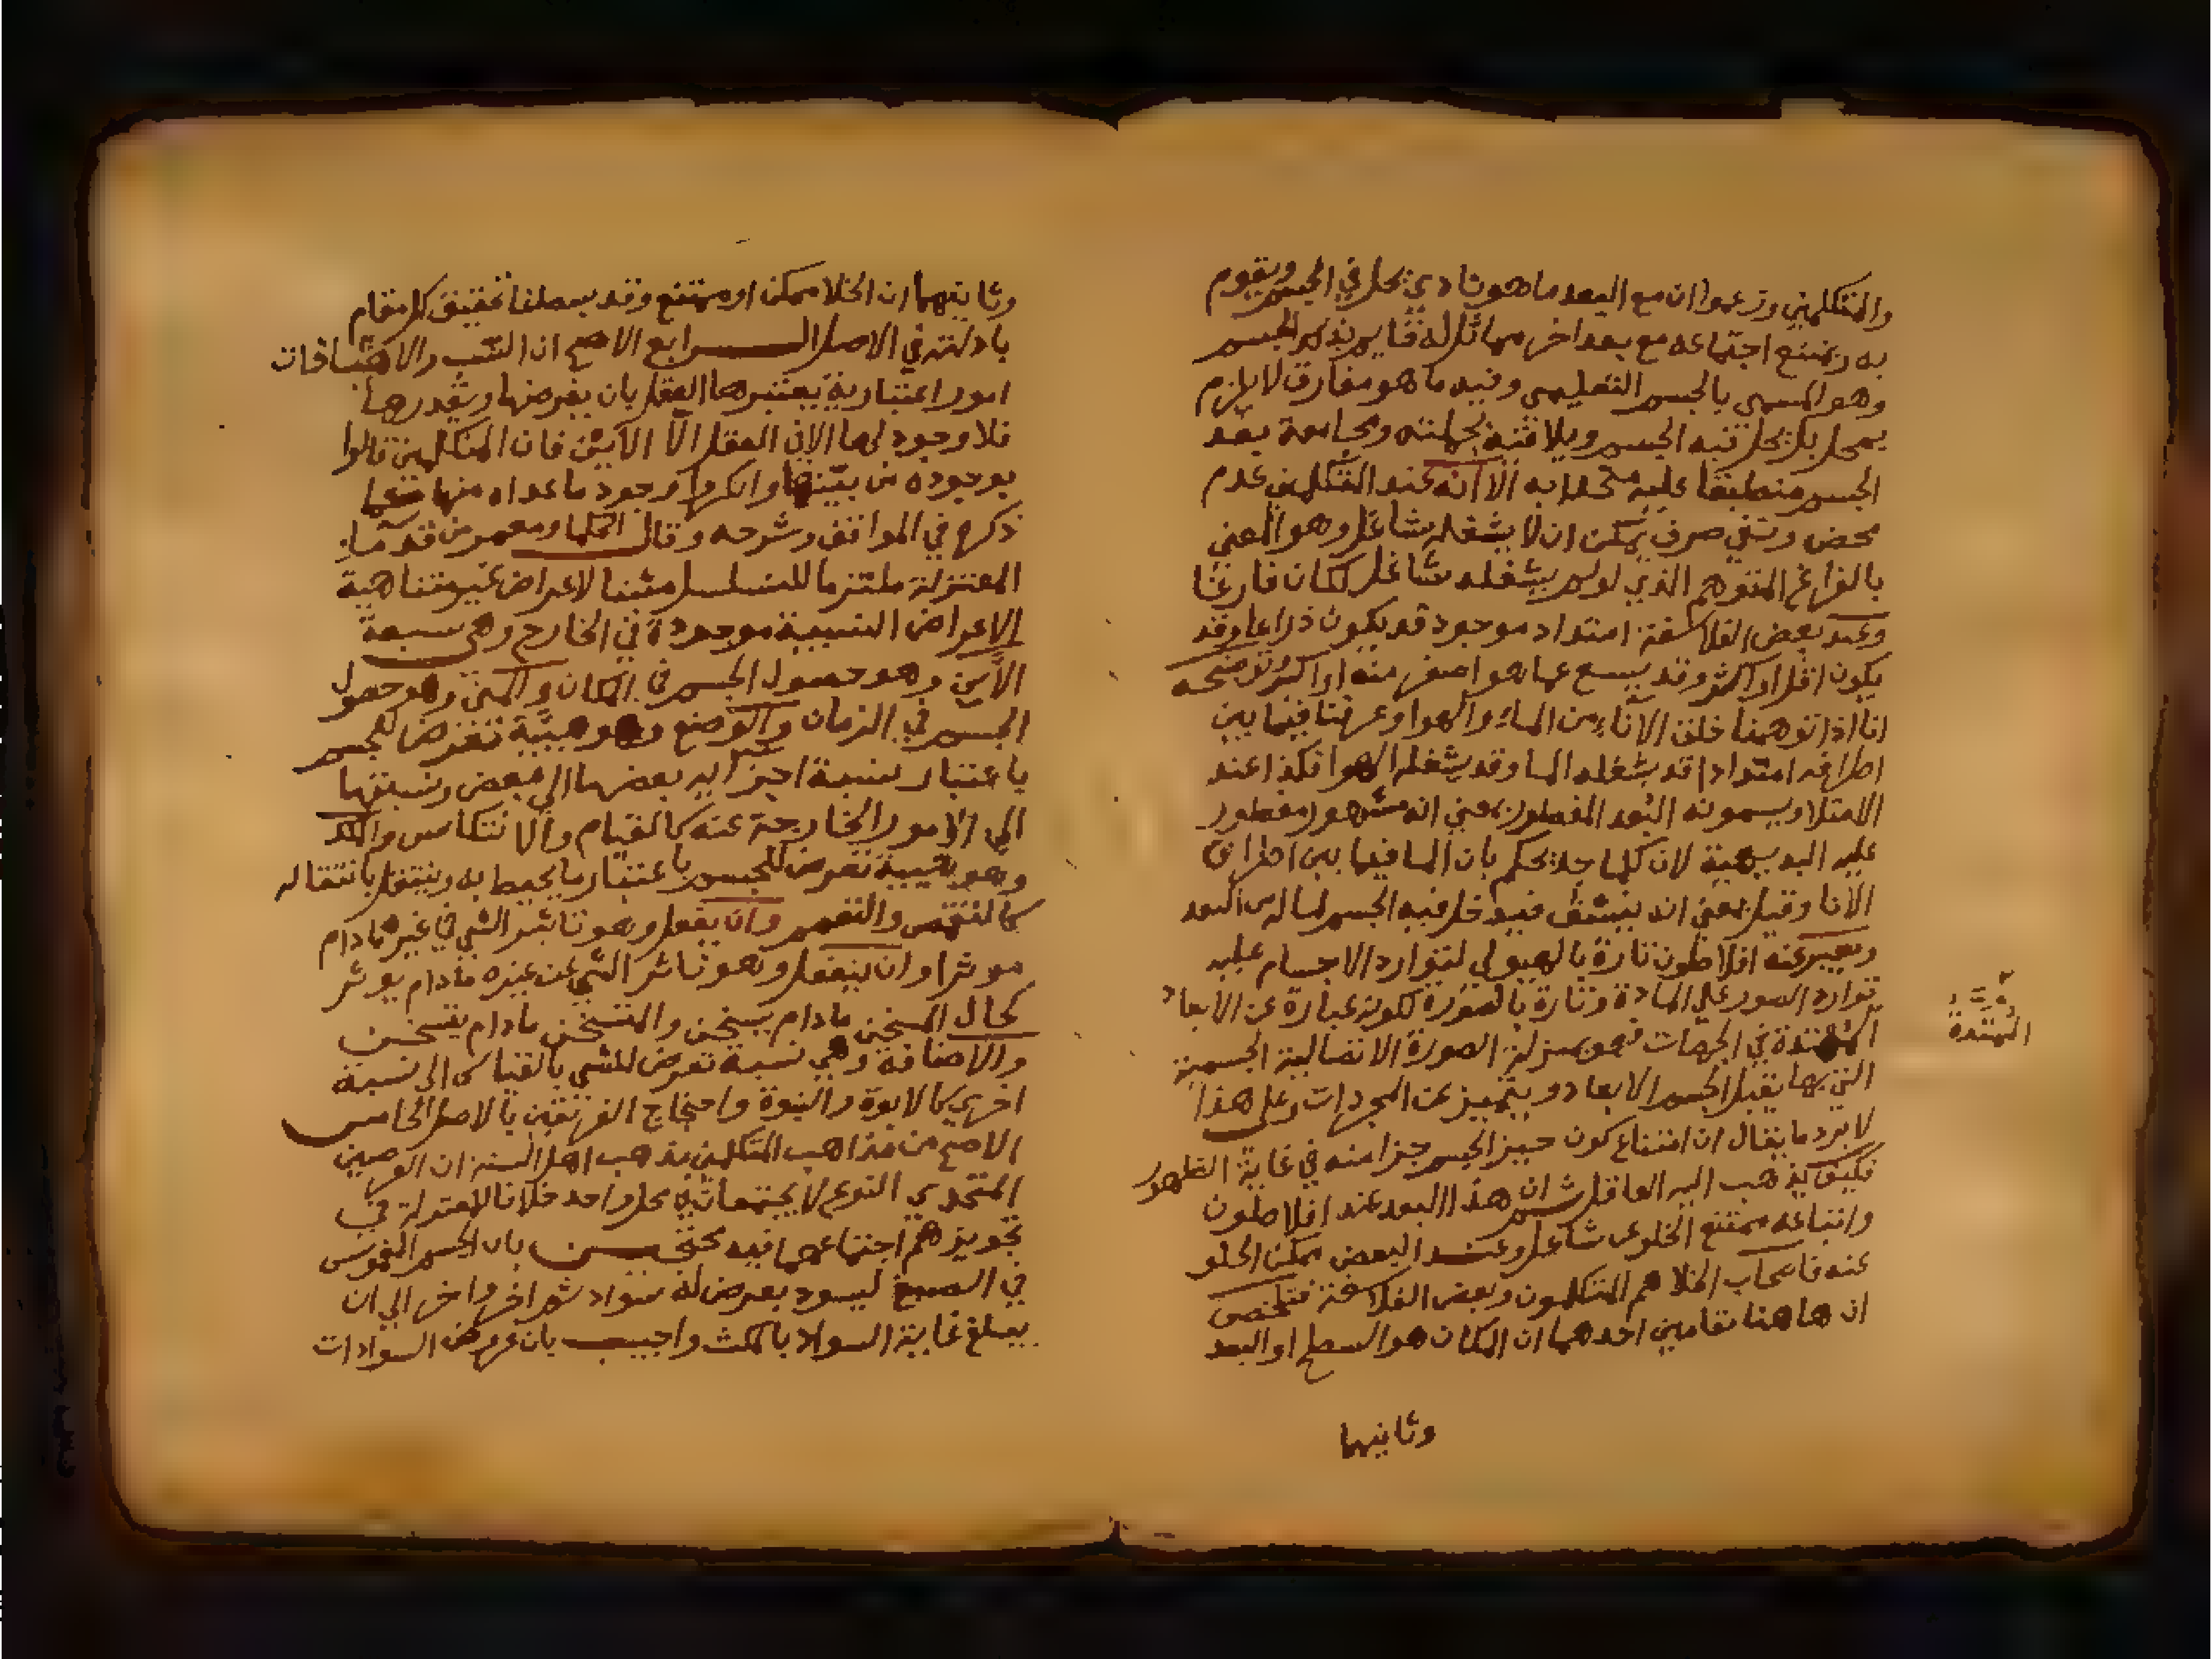 والمتكلمين وزعموا ان مع البعد ما هو مادي يحل في الجسم ويقوم
به ويمتنع اجتماعه مع بعد اخر مماثل له قايم بذلك الجسم
وهو المسمى بالجسم التعليمي وفيه ما هو مفارق لا يلزم
بمحل بل يحل فيه الجسم ويلاقيه بجملته ويجامعه بعد
الجسم منطبقا عليه متحدا به الا انه عند المتكلمين عدم
محض ونفي صرف يمكن ان لا يشغله شاغل وهو المعني
بالفراغ المتوهم الذي لو لم يشغله شاغل لكان فارغا
وعند بعض الفلاسفة امتداد موجود قد يكون ذراعا وقد
يكون اقل او اكثر وقد يسع عما هو اصغر منه او اكبر وتوضيحه
انا اذا توهمنا خلو الاناء من الماء والهوا وعرفنا فيما بين
اطرافه امتدادا قد يشغله الما وقد يشغله الهوا فكذا عند
الامتلا ويسمونه البُعد المفطور بمعني انه مشهور مفطور
عليه البديهية لان كل احد يحكم بان الما فيما بين اطراف
الانا وقيل بمعني انه ينشق فيدخل فيه الجسم لما له من البعد
ويعبر عنه افلاطون تارة بالهيولي لتوارد الاجسام عليه
توارد الصور علي المادة وتارة بالصورة لكونه عبارة عن الابعاد
الممتدة في الجهات فهو بمنزلة الصورة الاتصالية الجسمية
الممتدة
التي بها يقبل الجسم الابعاد ويتميز عن المجردات وعلى هذا
لا يرد ما يقال ان امتناع كون حيز الجسم جزا منه في غاية الظهور
فكيف يذهب اليه العاقل ثم ان هذا البعد عند افلاطون
واتباعه ممتنع الخلو عن شاغل وعند البعض ممكن الخلو
عنه فاصحاب الخلا هم المتكلمون وبعض الفلاسفة فتلخص
ان هاهنا مقامين احدهما ان المكان هو السطح او البعد
وثانيهما
وثانيهما ان الخلا ممكن او ممتنع وقد بسطنا تحقيق كل مقام
بادلته في الاصل الرابع الاصح ان النسب والاضافات
امور اعتبارية يعتبرها العقل بان يفرضها ويقدرها
فلا وجود لها الا في العقل الا الاين فان المتكلمين قالوا
بوجوده من بينها وانكروا وجود ما عداه منها
ذكره في المواقف وشرحه وقال الحكما ومعمر من قدماء
المعتزلة ملتزما للتسلسل مثبتا لاعراض غير متناهية
الاعراض النسبية موجودة في الخارج وهي سبعة
الأين وهو حصول الجسم في المكان والمتى وهو حصول
الجسم في الزمان والوضع وهو هيئة تعرض للجسم
باعتبار نسبة اجزايه بعضها الي بعض ونسبتها
الي الامور الخارجة عنه كالقيام والانتكاس والملك
وهو هيئة تعرض للجسم باعتبار ما يحيط به وينتقل بانتقاله
كالتقمص والتعمم وان يفعل وهو تاثير الشي في غيره ما دام
موثرا وان ينفعل وهو تاثر الشي عن غيره ما دام يوثر
كحال المسخن ما دام يسخن والمتسخن ما دام يتسخن
والاضافة وهي نسبة تعرض للشي بالقياس الى نسبة
اخرى كالابوة والبنوة واحتجاج الفريقين بالاصل الخامس
الاصح من مذاهب المتكلمين مذهب اهل السنة ان العرضين
المتحدي النوع لا يجتمعان في محل واحد خلافا للمعتزلة في
تجويزهم اجتماعهما فيه بان الجسم المغموس
في الصبغ ليسود يعرض له سواد ثم اخر واخر الي ان
يبلغ غاية السواد بالمكث واجيب بان عروض السوادات